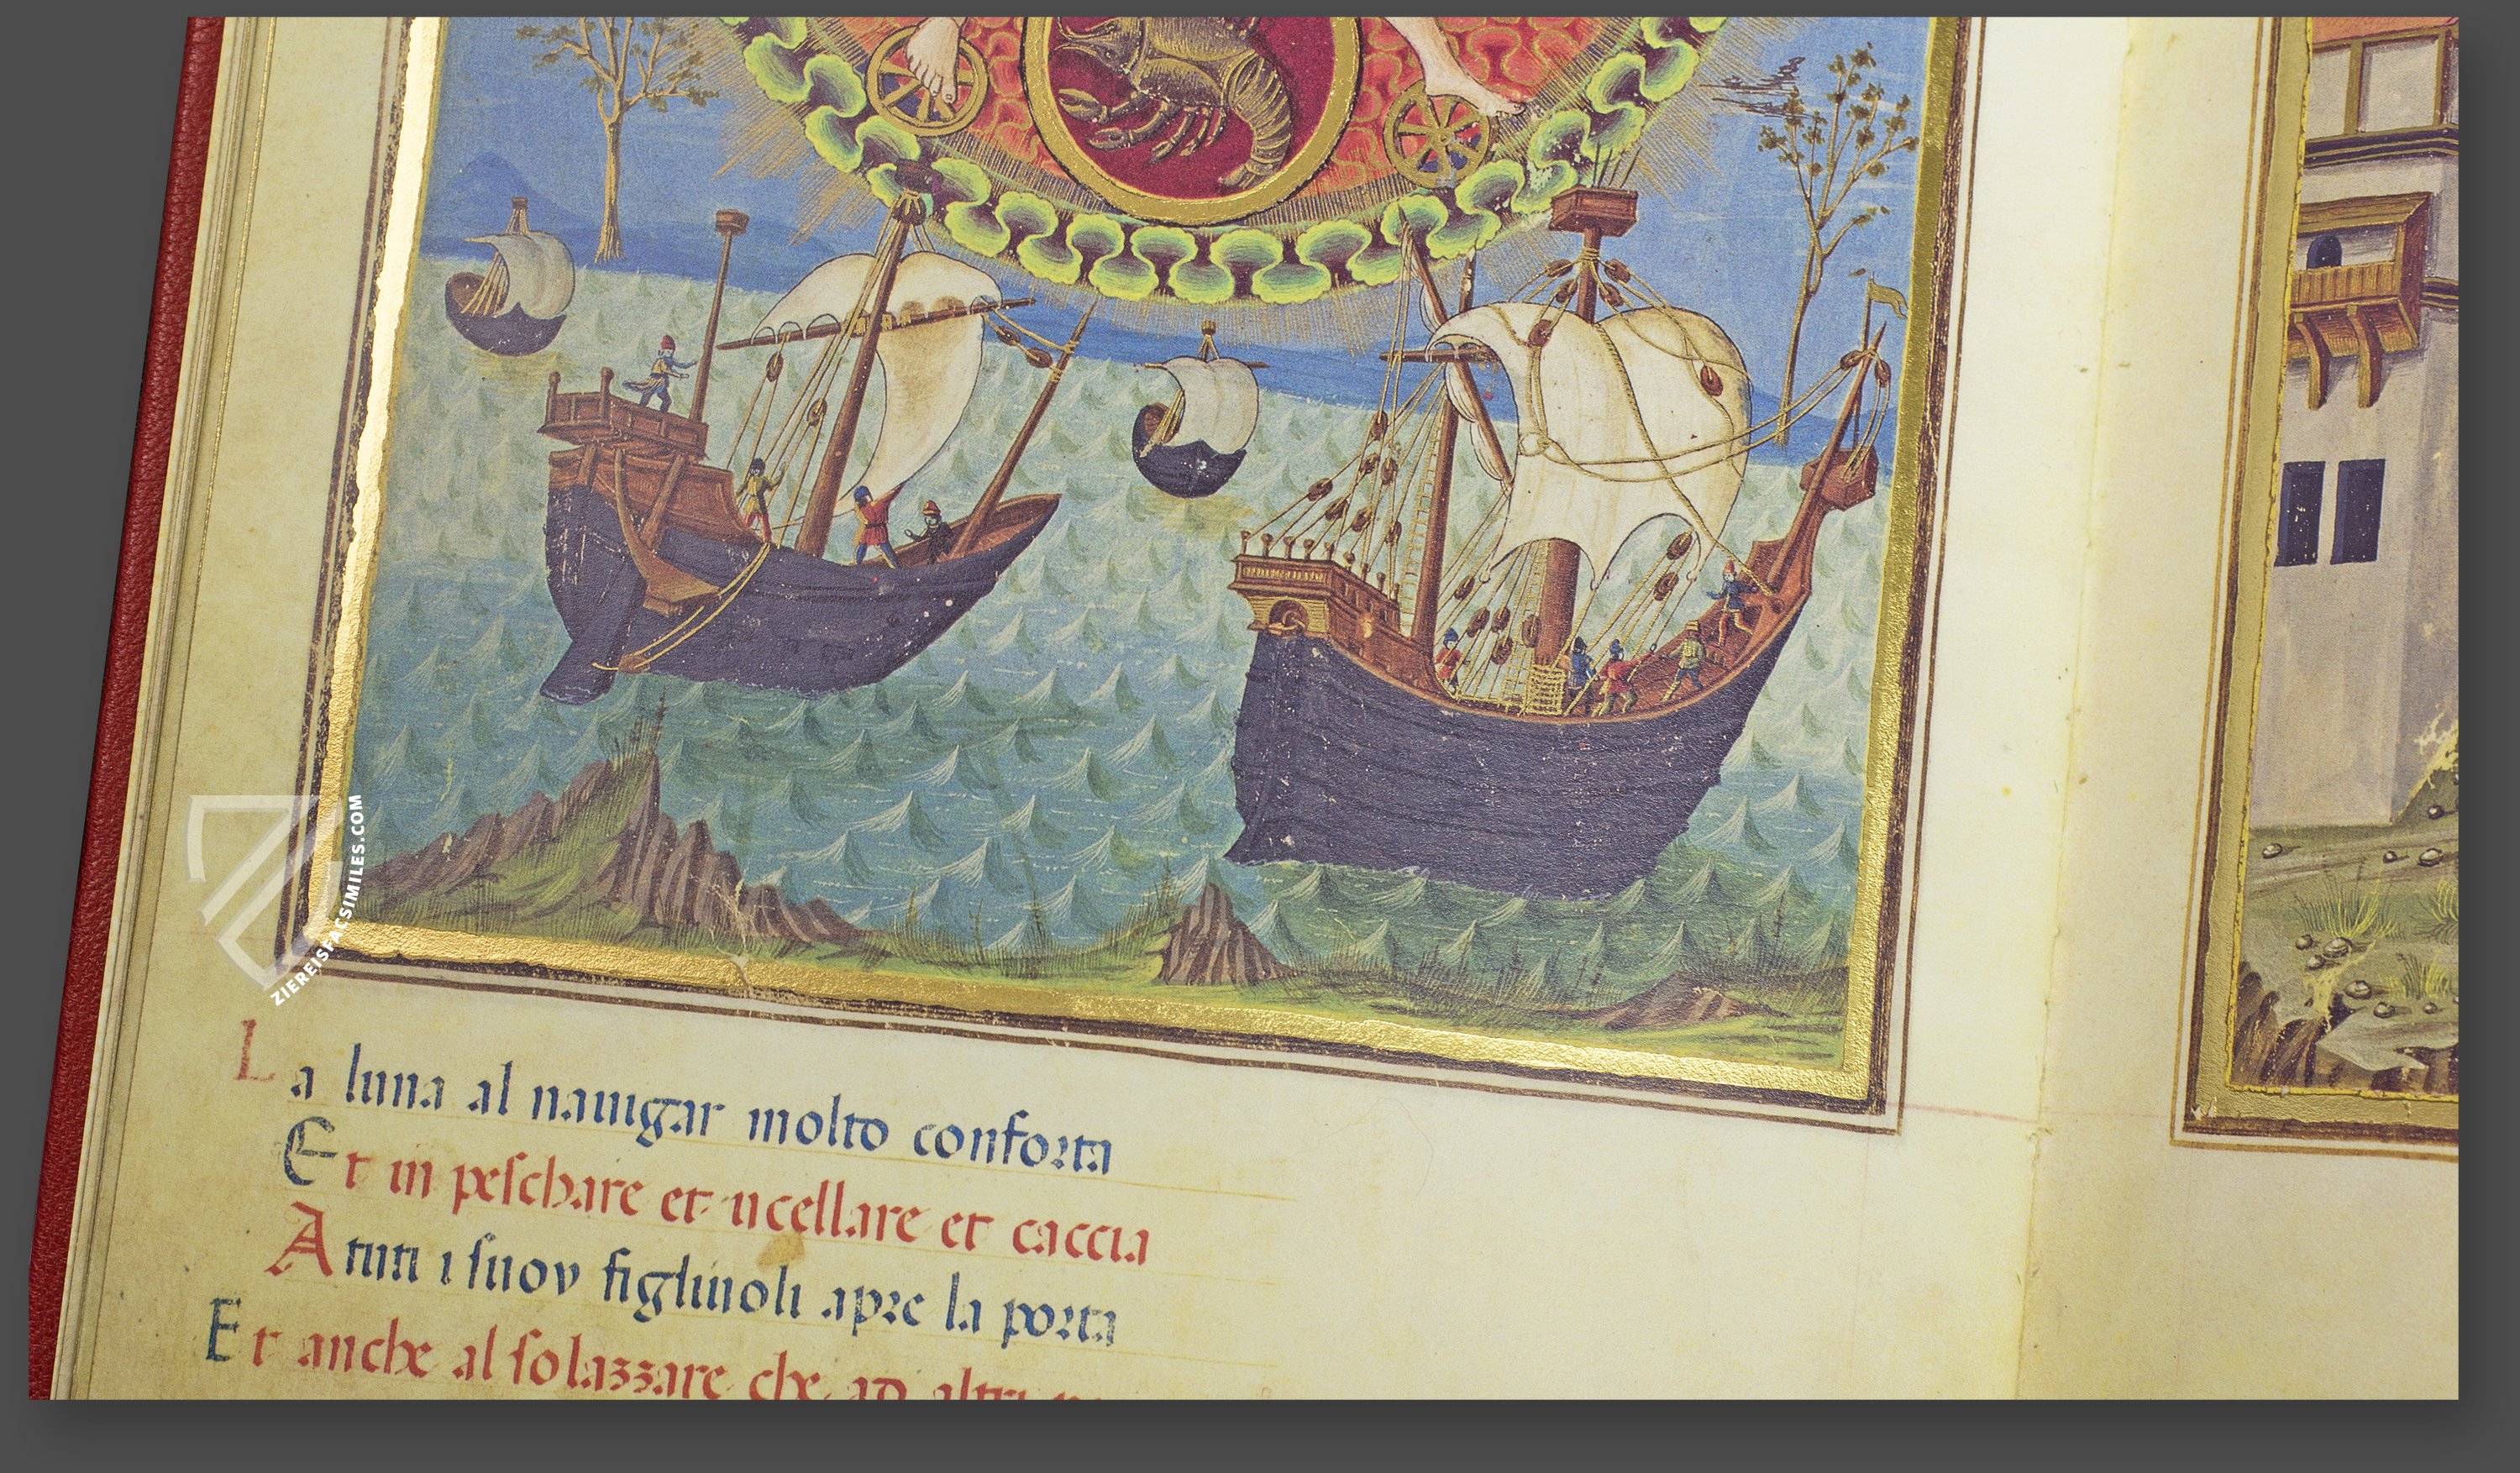 ZIEREISFACSIMILES.COM
La luna al nauigar molto conforta
Et in peschare et ucellare et caccia
A tutti i suoy figliuoli apre la porta
Et anche al solazzare che ad altri